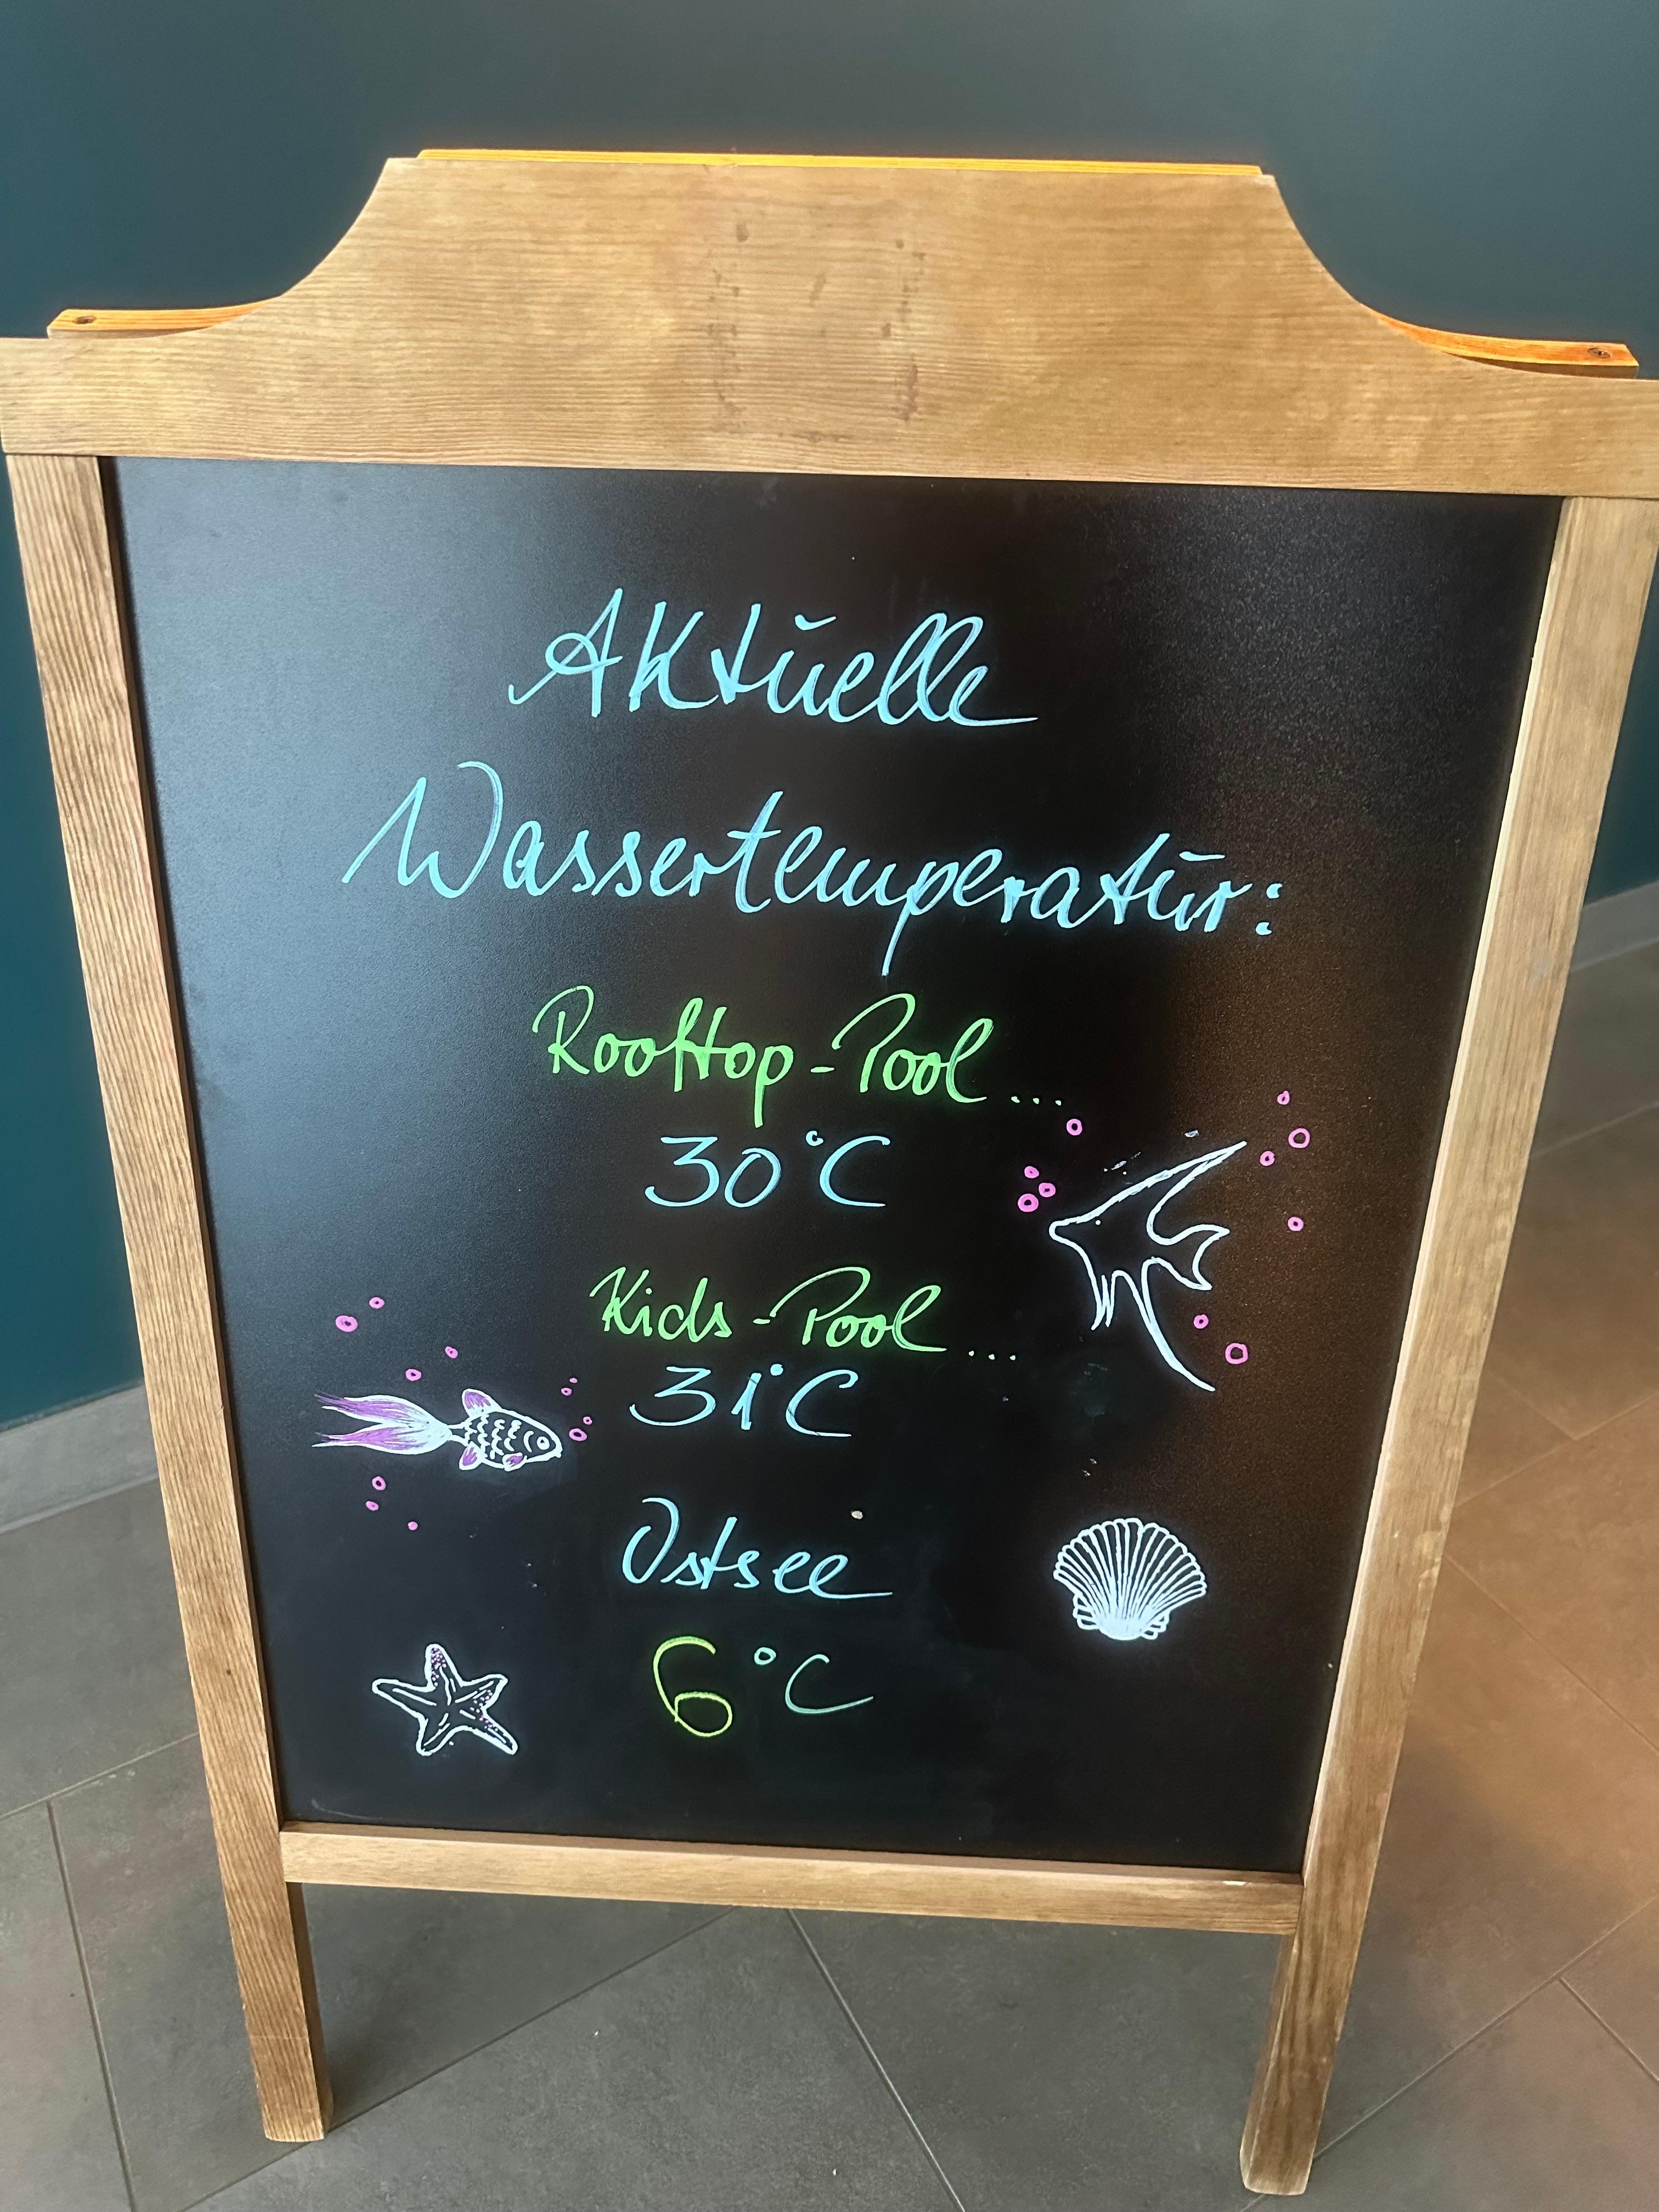 Aktuelle
Wassertemperatur:
Rooftop-Pool...
30°C
Kids-Pool...
31°C
Ostsee
6°C